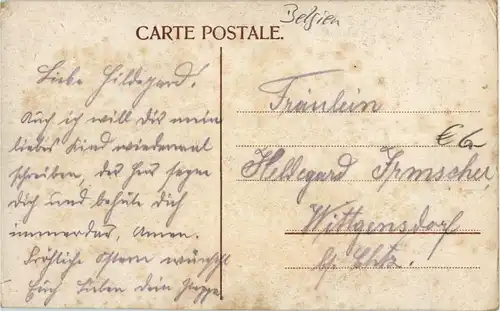 Belgien
CARTE POSTALE.
Liebe Hildegard!
Auch ich will dir mein
liebes Kind wiedermal
schreiben, der Herr segne
Dich und behüte dich
immerdar, Amen.
Fröhliche Ostern wünscht
Euch Lieben dein
Fräulein
Hildegard Irmscher,
Wittgensdorf
b/ Chtz.
€ 6,-